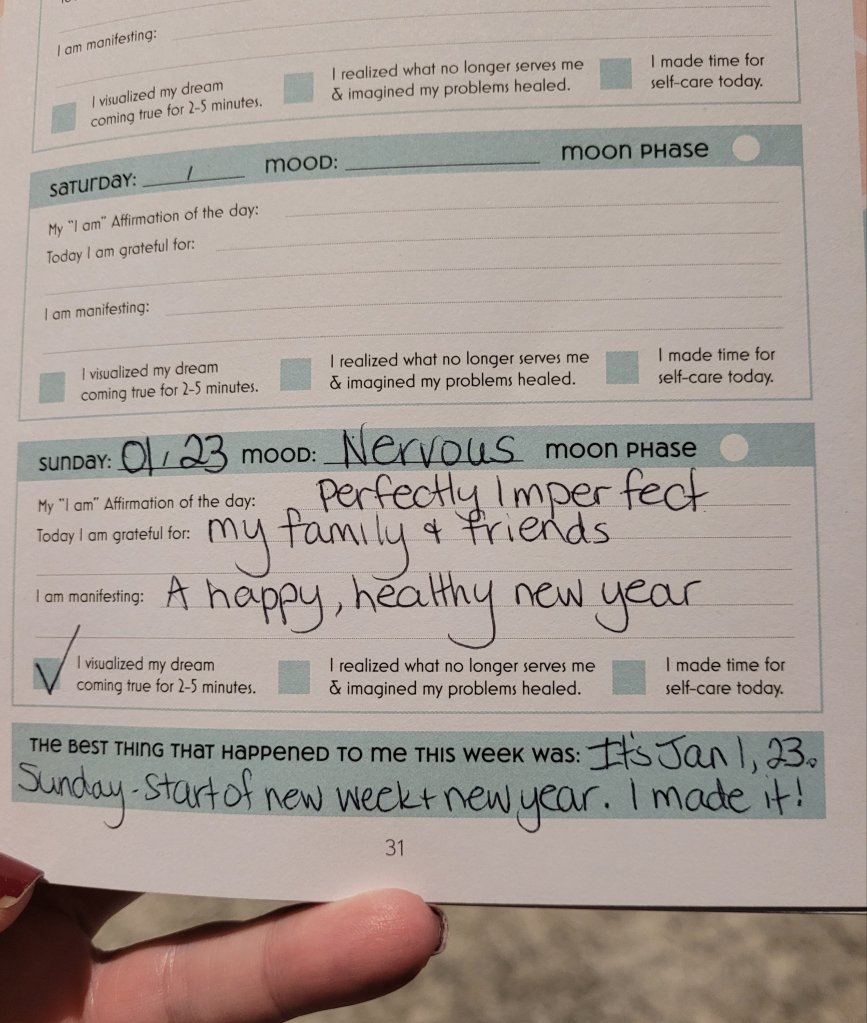 I am manifesting:
I visualized my dream
coming true for 2-5 minutes.
I realized what no longer serves me
& imagined my problems healed.
I made time for
self-care today.
SATURDAY: / MOOD: MOON PHASE
My "I am" Affirmation of the day:
Today I am grateful for:
I am manifesting:
I visualized my dream
coming true for 2-5 minutes.
I realized what no longer serves me
& imagined my problems healed.
I made time for
self-care today.
SUNDAY: 01/23 MOOD: Nervous MOON PHASE
My "I am" Affirmation of the day: Perfectly Imperfect
Today I am grateful for: my family & friends
I am manifesting: A happy, healthy new year
I visualized my dream
coming true for 2-5 minutes.
I realized what no longer serves me
& imagined my problems healed.
I made time for
self-care today.
THE BEST THING THAT HAPPENED TO ME THIS WEEK WAS: It's Jan 1, 23.
Sunday - Start of new week + new year. I made it!
31